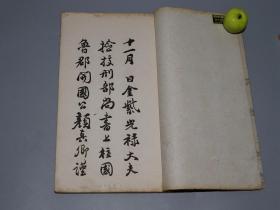 十一月 日金紫光祿大夫
撿挍刑部尚書上柱國
魯郡開國公顏真卿謹